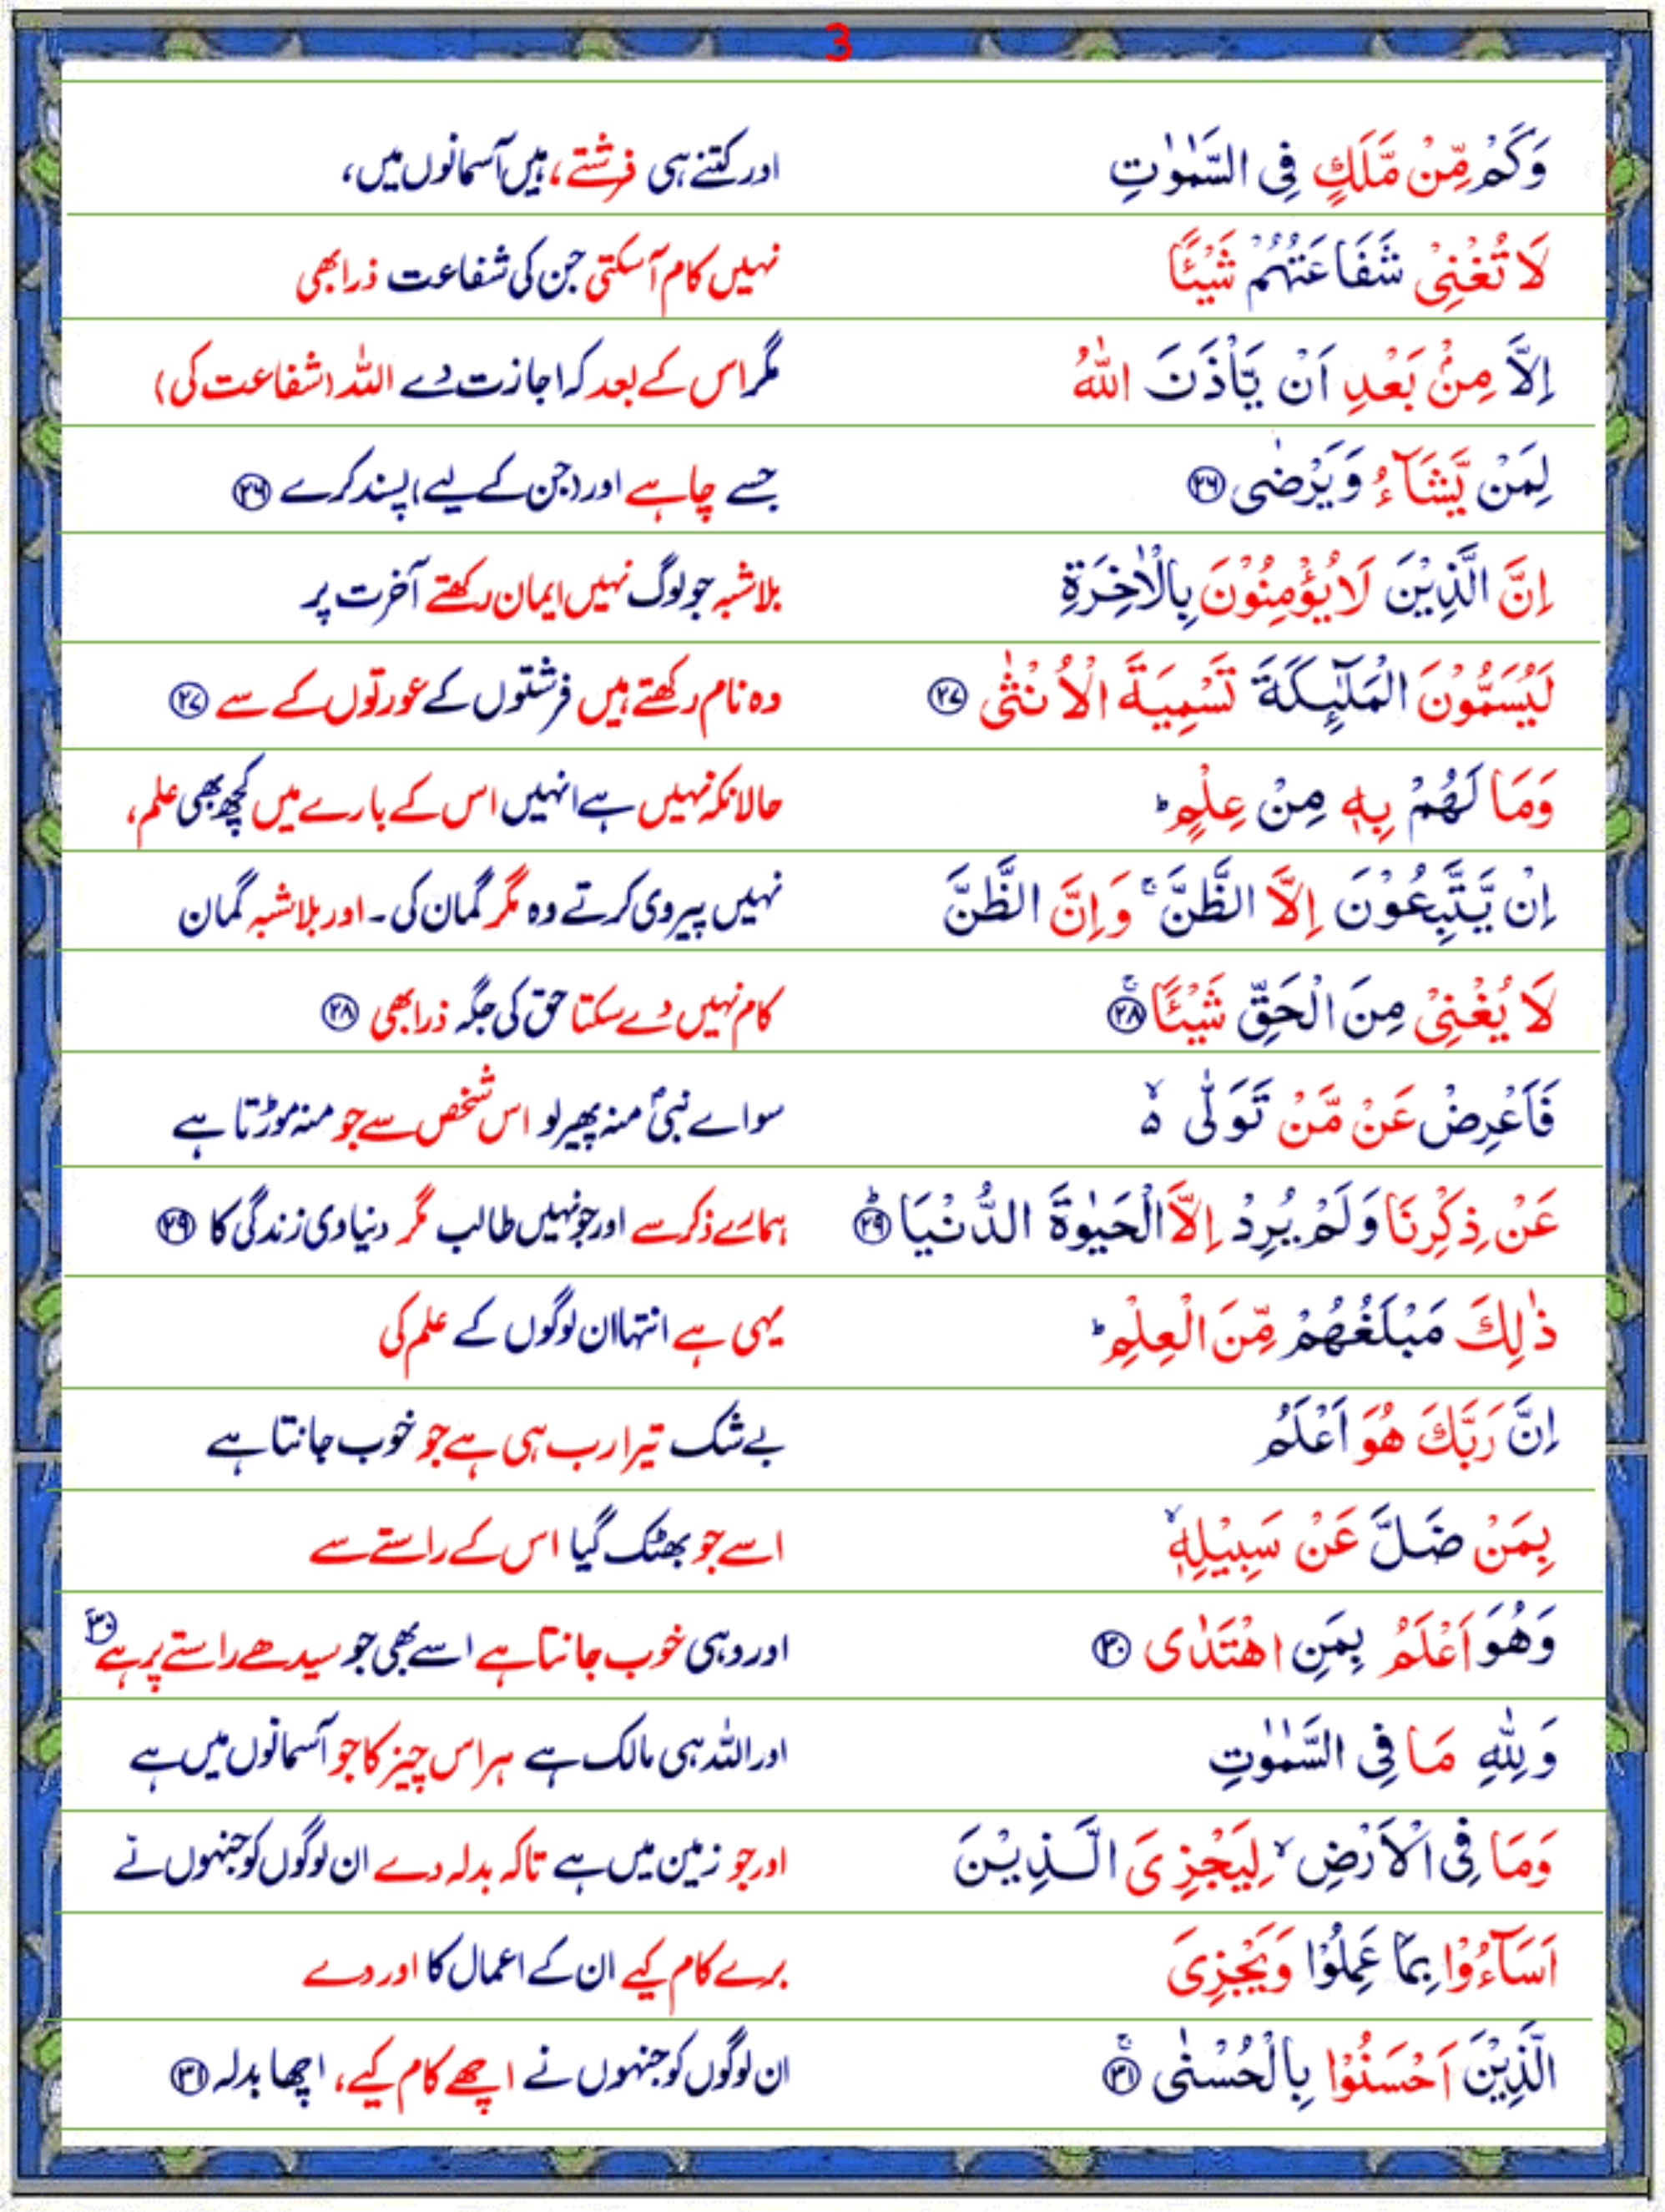 3
وَكَمْ مِّنْ مَّلَكٍ فِى السَّمٰوٰتِ اور کتنے ہی فرشتے، ہیں آسمانوں میں،
لَا تُغْنِىْ شَفَاعَتُهُمْ شَيْـًٔا نہیں کام آسکتی جن کی شفاعت ذرا بھی
اِلَّا مِنْۢ بَعْدِ اَنْ يَّاْذَنَ اللّٰهُ مگر اس کے بعد کہ اجازت دے اللہ (شفاعت کی)
لِمَنْ يَّشَآءُ وَيَرْضٰى ﴿۲۶﴾ جسے چاہے اور (جن کے لیے) پسند کرے ﴿۲۶﴾
اِنَّ الَّذِيْنَ لَا يُؤْمِنُوْنَ بِالْاٰخِرَةِ بلاشبہ جو لوگ نہیں ایمان رکھتے آخرت پر
لَيُسَمُّوْنَ الْمَلٰٓئِكَةَ تَسْمِيَةَ الْاُنْثٰى ﴿۲۷﴾ وہ نام رکھتے ہیں فرشتوں کے عورتوں کے سے ﴿۲۷﴾
وَمَا لَهُمْ بِهٖ مِنْ عِلْمٍ ؕ حالانکہ نہیں ہے انہیں اس کے بارے میں کچھ بھی علم،
اِنْ يَّتَّبِعُوْنَ اِلَّا الظَّنَّ ۚ وَاِنَّ الظَّنَّ نہیں پیروی کرتے وہ مگر گمان کی۔ اور بلاشبہ گمان
لَا يُغْنِىْ مِنَ الْحَقِّ شَيْـًٔا ﴿۲۸﴾ۚ کام نہیں دے سکتا حق کی جگہ ذرا بھی ﴿۲۸﴾
فَاَعْرِضْ عَنْ مَّنْ تَوَلّٰى ۙ۬ سو اے نبیؐ منہ پھیر لو اس شخص سے جو منہ موڑتا ہے
عَنْ ذِكْرِنَا وَلَمْ يُرِدْ اِلَّا الْحَيٰوةَ الدُّنْيَا ﴿۲۹﴾ؕ ہمارے ذکر سے اور جو نہیں طالب مگر دنیاوی زندگی کا ﴿۲۹﴾
ذٰلِكَ مَبْلَغُهُمْ مِّنَ الْعِلْمِ ؕ یہی ہے انتہا ان لوگوں کے علم کی
اِنَّ رَبَّكَ هُوَ اَعْلَمُ بے شک تیرا رب ہی ہے جو خوب جانتا ہے
بِمَنْ ضَلَّ عَنْ سَبِيْلِهٖ ۙ اسے جو بھٹک گیا اس کے راستے سے
وَهُوَ اَعْلَمُ بِمَنِ اهْتَدٰى ﴿۳۰﴾ اور وہی خوب جانتا ہے اسے بھی جو سیدھے راستے پر ہے ﴿۳۰﴾
وَلِلّٰهِ مَا فِى السَّمٰوٰتِ اور اللہ ہی مالک ہے ہر اس چیز کا جو آسمانوں میں ہے
وَمَا فِى الْاَرْضِ ۙ لِيَجْزِىَ الَّذِيْنَ اور جو زمین میں ہے تاکہ بدلہ دے ان لوگوں کو جنہوں نے
اَسَآءُوْا بِمَا عَمِلُوْا وَيَجْزِىَ برے کام کیے ان کے اعمال کا اور دے
الَّذِيْنَ اَحْسَنُوْا بِالْحُسْنٰى ﴿۳۱﴾ۚ ان لوگوں کو جنہوں نے اچھے کام کیے، اچھا بدلہ ﴿۳۱﴾